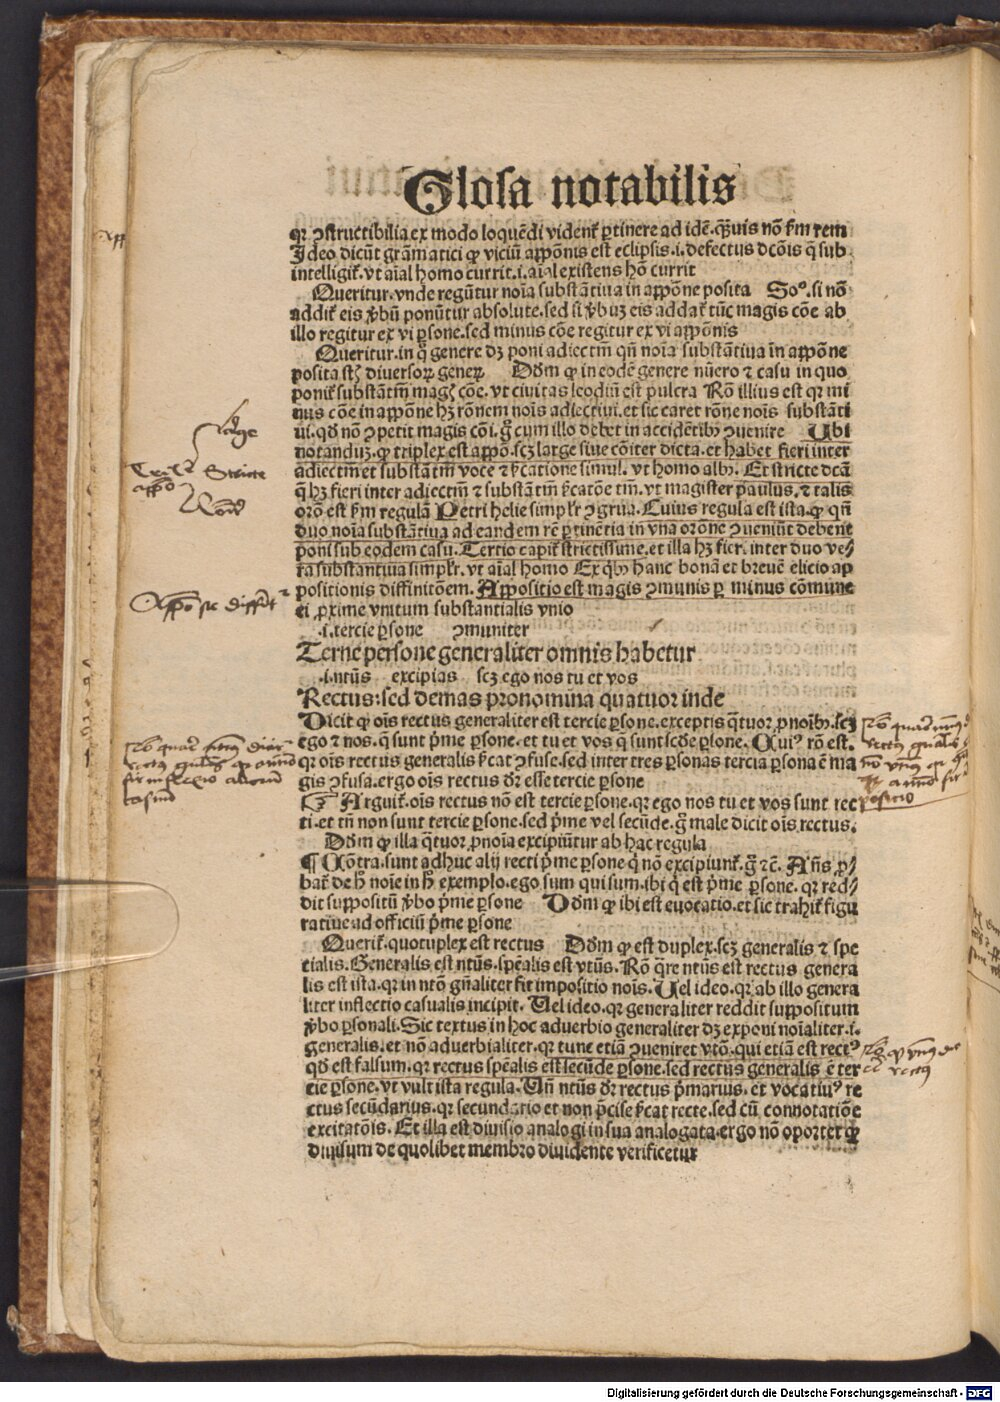 Glosa notabilis
qꝛ ꝯstructibilia ex modo loquēdi vident᷑ ꝑtinere ad idē. q̄uis nō ẜm rem
Ideo dicūt grāmatici ꝙ viciū appōnis est eclipsis .i. defectus dcōis q̄ sub
intelligit᷑. vt aīal homo currit .i. aīal existens hō currit
Querit᷑. vnde regūtur noīa substātiua in appōne posita Soº. si nō
addit᷑ eis v̄bū ponūtur absolute. sed si v̄buꝫ eis addat᷑ tūc magis cōe ab
illo regitur ex vi ꝑsone. sed minus cōe regitur ex vi appōnis
Queritur. in q̊ genere dꝫ poni adiectm̄ qn̄ noīa substātiua in appōne
posita st̄ diuersoꝝ geneꝝ Dd̄m ꝙ in eodē genere nūero ⁊ casu in quo
ponit᷑ substātm̄ magꝭ cōe. vt ciuitas leodiū est pulcra Rō illius est qꝛ mi
nus cōe in appōne hꝫ rōnem nois adiectiui. et sic caret rōne nois substāti
ui. qd̄ nō ꝯpetit magis cōi. g̊ cum illo debet in accidētibꝫ ꝯuenire Ubi
notanduꝫ. ꝙ triplex est appō. scꝫ large siue cōiter dicta. et habet fieri inter
adiectm̄ et substātm̄ voce ⁊ ẜcatione simul. vt homo albꝰ. Et stricte dcā
q̄ hꝫ fieri inter adiectm̄ ⁊ substātm̄ ẜcatōe tm̄. vt magister paulus. ⁊ talis
orō est ẜm regulā Petri helie simplr̄ ꝯgrua. Cuius regula est ista. ꝙ qn̄
duo noīa substātiua ad eandem rē ꝑtinētia in vna orōne ꝯueniūt debent
poni sub eodem casu. Tertio capit᷑ strictissime. et illa hꝫ fieri inter duo ve⸗
ra substantiua simplr̄. vt aīal homo Ex q̄bꝰ hanc bonā et breuē elicio ap
positionis diffinitōem. Appositio est magis ꝯmunis ꝑ minus cōmune
ei ꝓxime vnitum substantialis vnio
.i. tercie ꝑsone ꝯmuniter
Terne persone generaliter omnis habetur
.i. ntūs excipias scꝫ ego nos tu et vos
Rectus: sed demas pronomina quatuor inde
Dicit ꝙ oīs rectus generaliter est tercie ꝑsone. exceptis q̄tuor ꝓnoibꝫ. scꝫ
ego ⁊ nos. q̄ sunt p̄me ꝑsone. et tu et vos q̄ sunt scd̄e ꝑsone. Cuiꝰ rō est.
qꝛ oīs rectus generalis ẜcat ꝯfuse. sed inter tres ꝑsonas tercia ꝑsona ē ma
gis ꝯfusa. ergo oīs rectus dꝛ esse tercie ꝑsone
☞ Arguit᷑. oīs rectus nō est tercie ꝑsone. qꝛ ego nos tu et vos sunt rec
ti. et tn̄ non sunt tercie ꝑsone. sed p̄me vel secūde. g̊ male dicit oīs rectus.
Dd̄m ꝙ illa q̄tuor ꝓnoīa excipiūtur ab hac regula
¶ Cōtra. sunt adhuc alij recti p̄me ꝑsone q̄ nō excipiunt᷑. g̊ ⁊c̄. Añs ꝓ⸗
bat᷑ de h̊ noīe in h̊ exemplo. ego sum qui sum. ibi q̇ est p̄me ꝑsone. qꝛ red⸗
dit suppositū v̄bo p̄me ꝑsone Dd̄m ꝙ ibi est euocatio. et sic trahit᷑ figu
ratiue ad officiū p̄me ꝑsone
Querit᷑. quotuplex est rectus Dd̄m ꝙ est duplex. scꝫ generalis ⁊ spe
cialis. Generalis est ntūs. spēalis est vtūs. Rō q̄re ntūs est rectus genera
lis est ista. qꝛ in ntō gn̄aliter fit impositio nois. Uel ideo. qꝛ ab illo genera
liter inflectio casualis incipit. Uel ideo. qꝛ generaliter reddit suppositum
v̄bo ꝑsonali. Sic textus in hoc aduerbio generaliter dꝫ exponi noīaliter .i.
generalis. et nō aduerbialiter. qꝛ tunc etiā ꝯueniret vtō. qui etiā est rectꝰ
qd̄ est falsum. qꝛ rectus spēalis est secūde ꝑsone. sed rectus generalis ē ter
cie ꝑsone. vt vult ista regula. Uñ ntūs dꝛ rectus p̄marius. et vocatiuꝰ re
ctus secūdarius. qꝛ secundario et non p̄cise ẜcat recte. sed cū connotatiōe
excitatōis. Et illa est diuisio analogi in sua analogata. ergo nō oportet ꝙ
diuisum de quolibet membro diuidente verificetur
large
Stricte
Digitalisierung gefördert durch die Deutsche Forschungsgemeinschaft - DFG